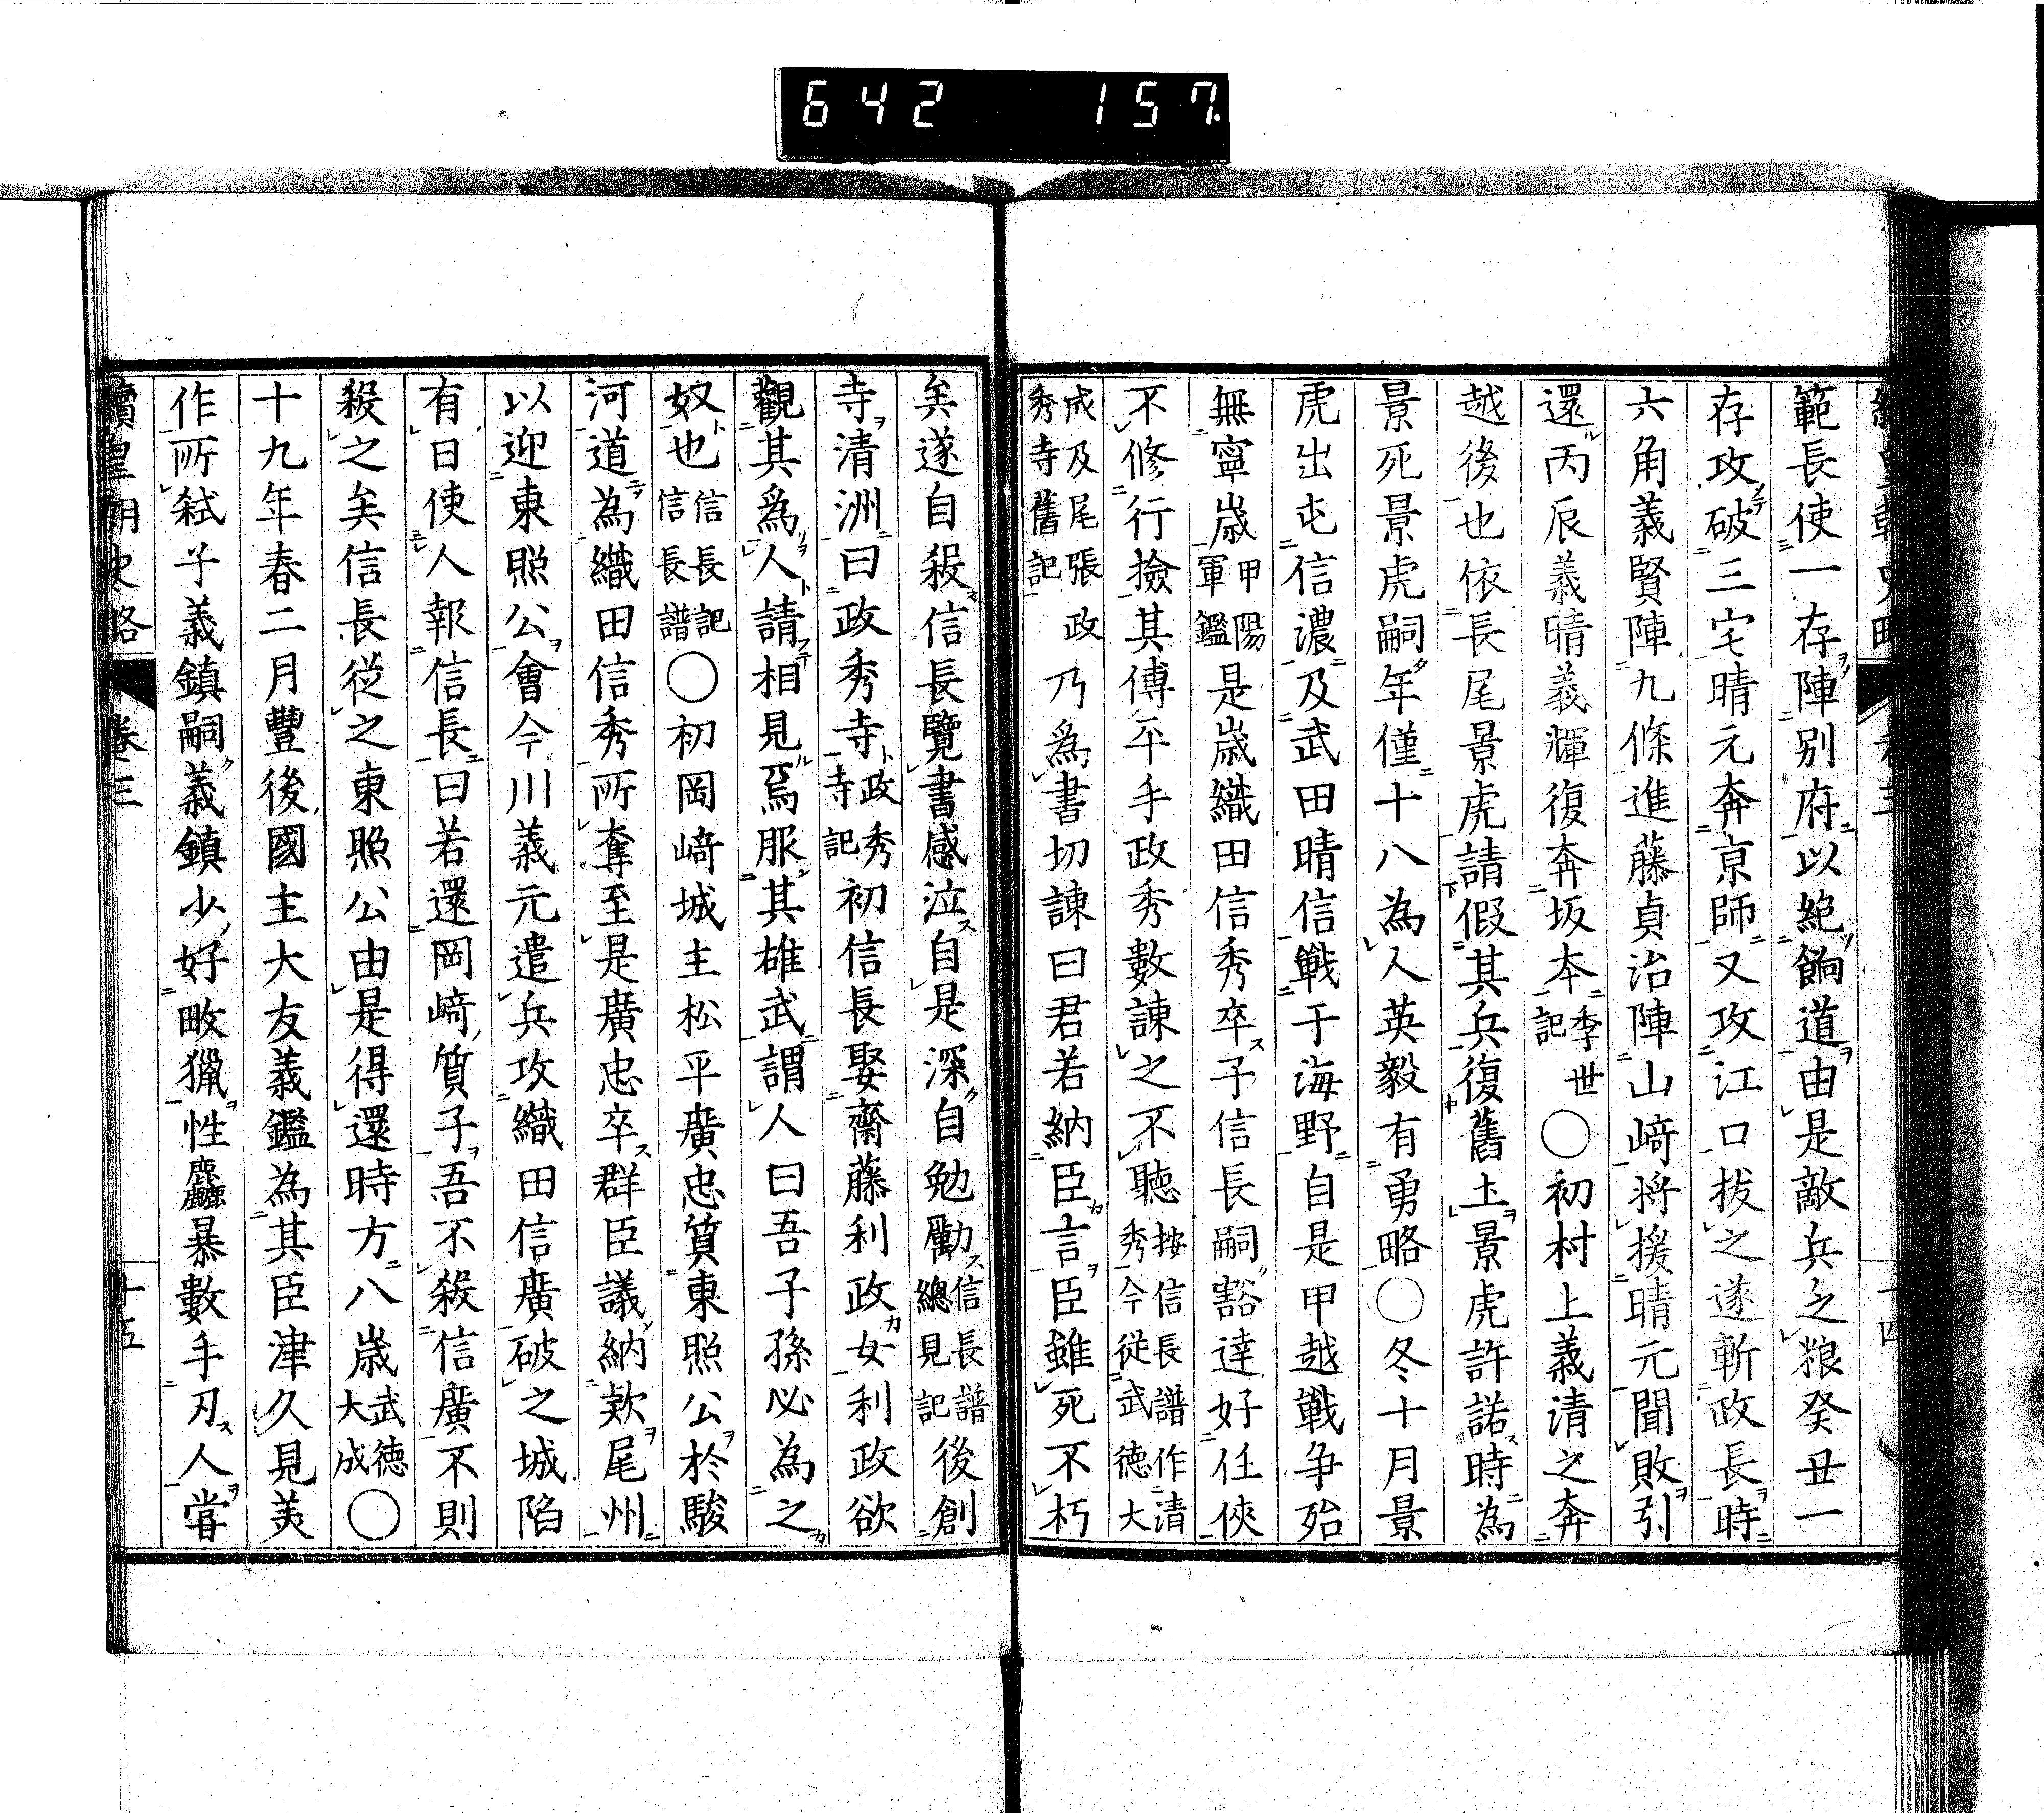 642 157
範長使一存陣別府以絶餉道由是敵兵之粮癸丑一
存攻破三宅晴元奔京師又攻江口抜之遂斬政長時
六角義賢陣九條進藤貞治陣山﨑将援晴元聞敗引
還丙辰義晴義輝復奔坂本李世記〇初村上義清之奔
越後也依長尾景虎請假其兵復舊土景虎許諾時為
景死景虎嗣年僅十八為人英毅有勇略〇冬十月景
虎出屯信濃及武田晴信戰于海野自是甲越戰争殆
無寧歳甲陽軍鑑是歳織田信秀卒子信長嗣豁達好任俠
不修行撿其傅平手政秀數諫之不聽按信長譜作清秀今従武徳大
成及尾張政秀寺舊記乃爲書切諫曰君若納臣言臣雖死不朽
矣遂自殺信長覽書感泣自是深自勉勵信長譜總見記後創
寺清洲曰政秀寺政秀寺記初信長娶齋藤利政女利政欲
觀其爲人請相見焉服其雄武謂人曰吾子孫必為之
奴也信長記信長譜〇初岡﨑城主松平廣忠質東照公於駿
河道為織田信秀所奪至是廣忠卒群臣議納欵尾州
以迎東照公會今川義元遣兵攻織田信廣破之城陷
有日使人報信長曰若還岡﨑質子吾不殺信廣不則
殺之矣信長從之東照公由是得還時方八歳武徳大成〇
十九年春二月豐後國主大友義鑑為其臣津久見美
作所弑子義鎮嗣義鎮少好畋獵性麤暴數手刃人嘗
續皇朝史略 卷三 十五